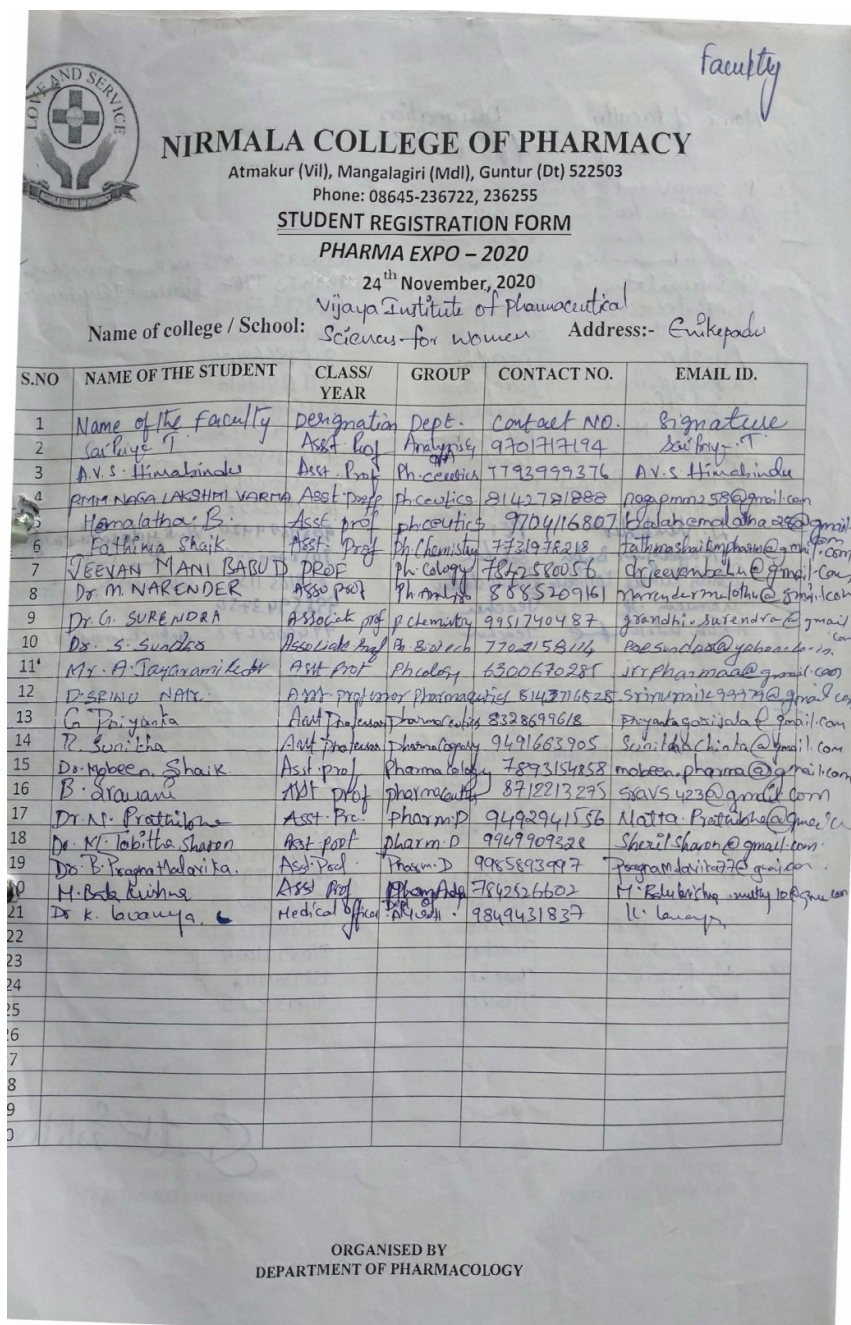 Faculty
LOVE AND SERVICE
NIRMALA COLLEGE OF PHARMACY
Atmakur (Vil), Mangalagiri (Mdl), Guntur (Dt) 522503
Phone: 08645-236722, 236255
STUDENT REGISTRATION FORM
PHARMA EXPO – 2020
24th November, 2020
Name of college / School: Vijaya Institute of Pharmaceutical
Sciences for women Address:- Enikepadu
S.NO NAME OF THE STUDENT CLASS/ YEAR GROUP CONTACT NO. EMAIL ID.
1 Name of the Faculty Designation Dept. Contact NO. Signature
2 Sai Priya T Asst. Prof Analysis 9701717194 Sai Priya. T
3 A.V.S. Himabindu Asst. Prof Ph.ceutics 7793999376 A.V.S Himabindu
4 PMM NAGA LAKSHMI VARMA Asst. Prof Ph.ceutics 8142781888 nagapmm258@gmail.com
5 Hemalatha. B. Asst prof phceutics 9704116807 balahemalatha28@gmail.com
6 Fathima Shaik. Asst. Prof Ph.Chemistry 7731978218 fathmashaikmpharm@gmail.com
7 JEEVAN MANI BABU D PROF Ph.Cology 7842580056 drjeevanbabu@gmail.com
8 Dr. M. NARENDER Asso prof Ph.Analysis 8885209161 narendermulothu@gmail.com
9 Dr. G. SURENDRA Associate prof P.chemistry 9951740487 grandhi.surendra@gmail.com
10 Dr. S. Sundar Associate Prof Ph.Biotech
11 Mr. A. Jayaramireddy Asst Prof Phcology 6300670285 jrrpharmaa@gmail.com
12 D. SRINU NAIK. Asst professor Pharmaceutics
13 G Priyanka Asst Professor pharmaceutics 8328699618 Priyankagarijala@gmail.com
14 R. Sunitha Asst Professor pharmacognosy 9491663905 Sunithachinta@gmail.com
15 Dr. Mobeen. Shaik. Asst. prof Pharmacology 7893154858 mobeen.pharma@gmail.com
16 B. Sravani Asst prof pharmaceutics 8712213275 sravs423@gmail.com
17 Dr. N. Prathibha Asst. Pro. pharm.D 9492941556
18 Dr. M. Tabitha Sharon Asst. prof pharm.D 9949909328 Sherilsharon@gmail.com
19 Dr. B. Pragna Malavika. Asst. Prof. Pharm.D 9985893997
20 M. Bala Krishna Asst Prof 7842526602
21 Dr K. Lavanya. Medical officer 9849431837 K. Lavanya
22
23
24
25
26
7
8
9
0
ORGANISED BY
DEPARTMENT OF PHARMACOLOGY